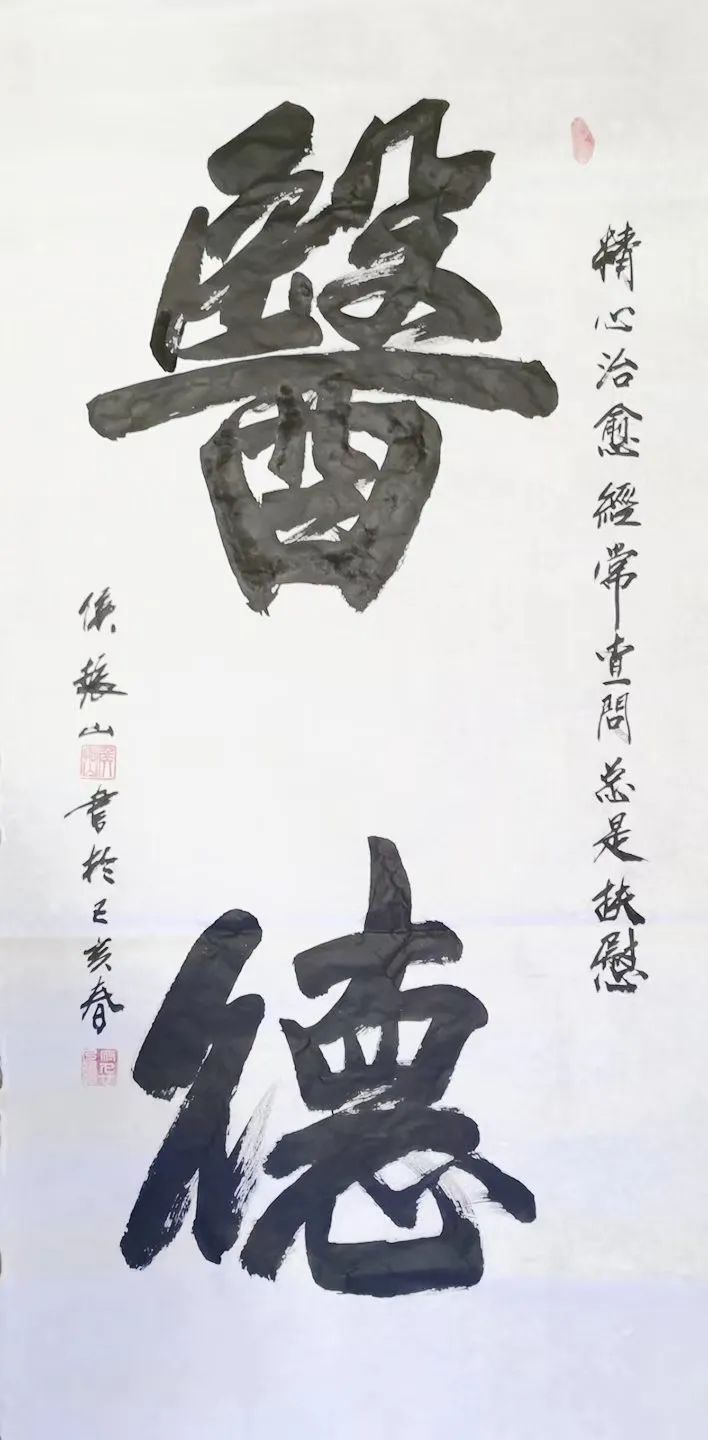 醫德
精心治愈經常查問总是扶慰
侯振山
書於己亥春